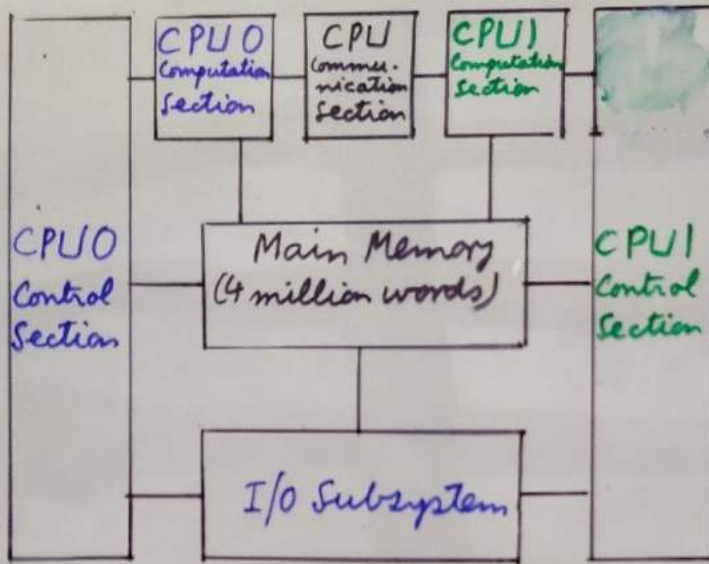 CPU 0
Computation
Section
CPU
Commu-
nication
Section
CPU1
Computation
Section
CPU0
Control
Section
Main Memory
(4 million words)
CPU1
Control
Section
I/O Subsystem